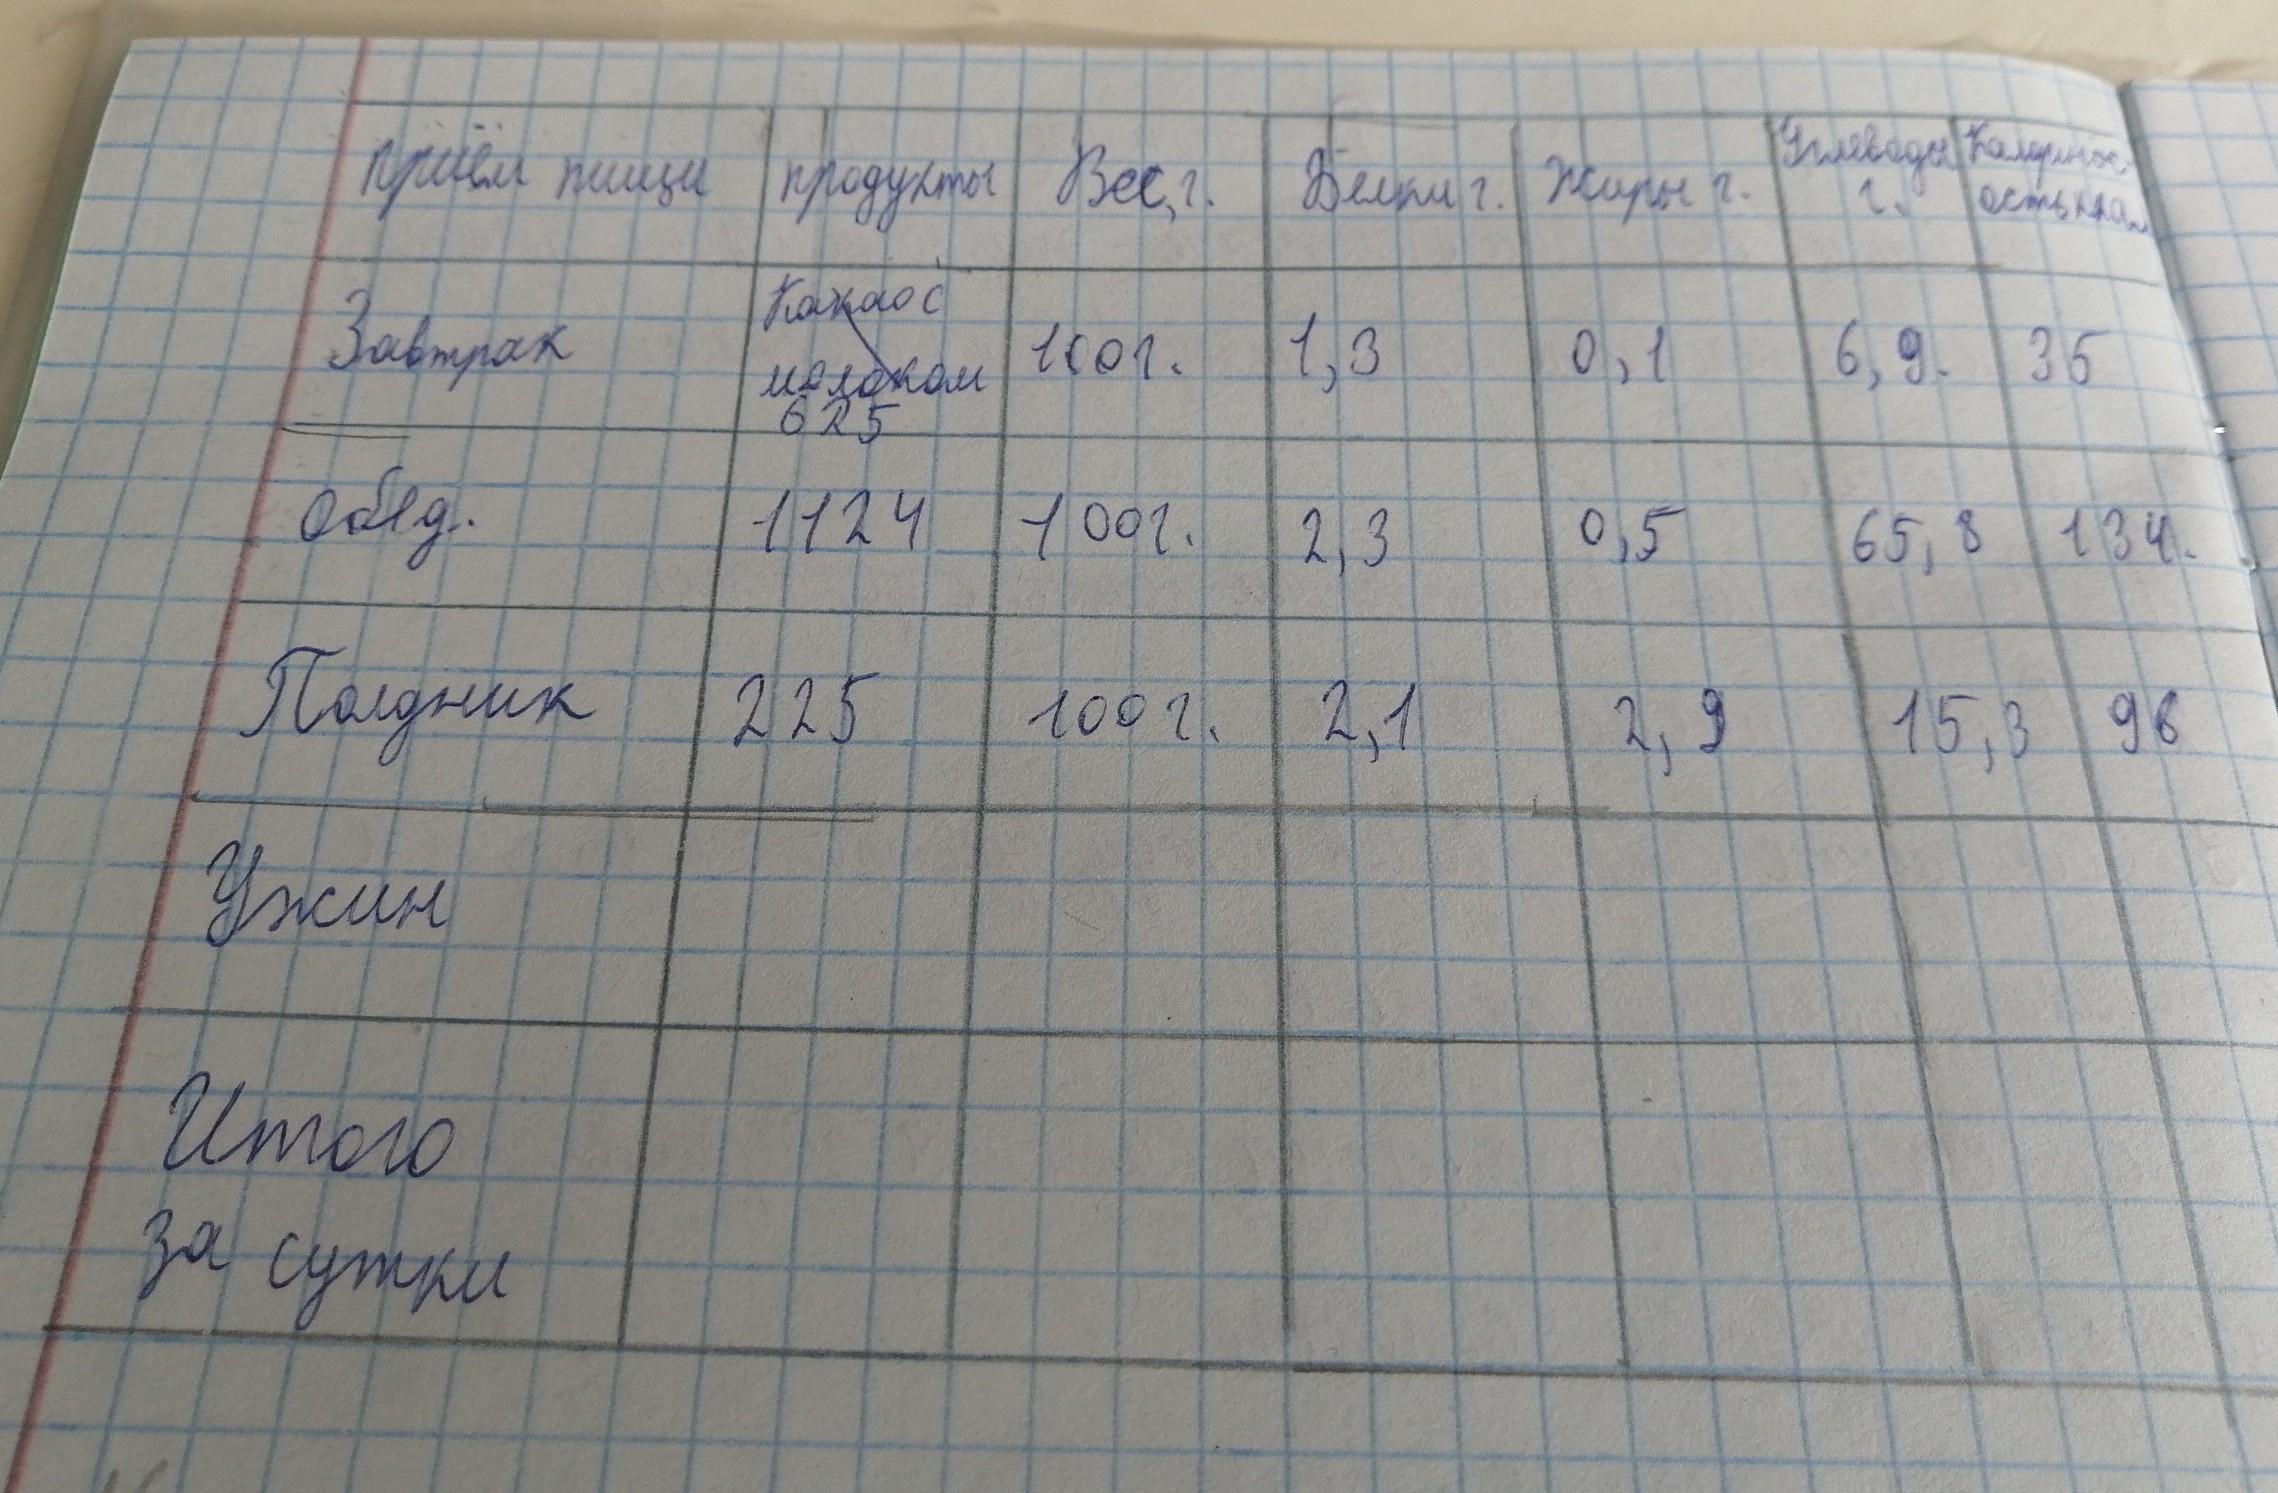 приём пищи продукты Вес, г. Белки г. Жиры г. Углеводы г. Калорийн-ость ккал
Завтрак Какао с 100г. 1,3 0,1 6,9. 35
молоком
625
Обед. 1124 100г. 2,3 0,5 65,8 134.
Полдник 225 100г. 2,1 2,9 15,3 96
Ужин
Итого
за сутки